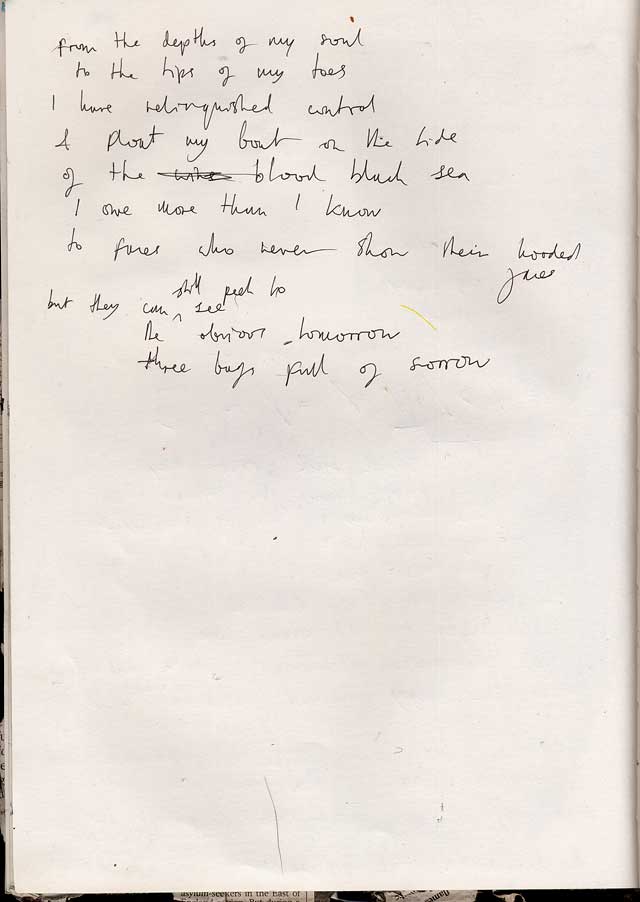 from the depths of my soul
to the tips of my toes
I have relinquished control
& float my boat on the tide
of the blood black sea
I owe more than I know
to faces who never show their hooded
faces
but they can still peek to see
the obvious tomorrow
three bags full of sorrow
asylum-seekers in the East of